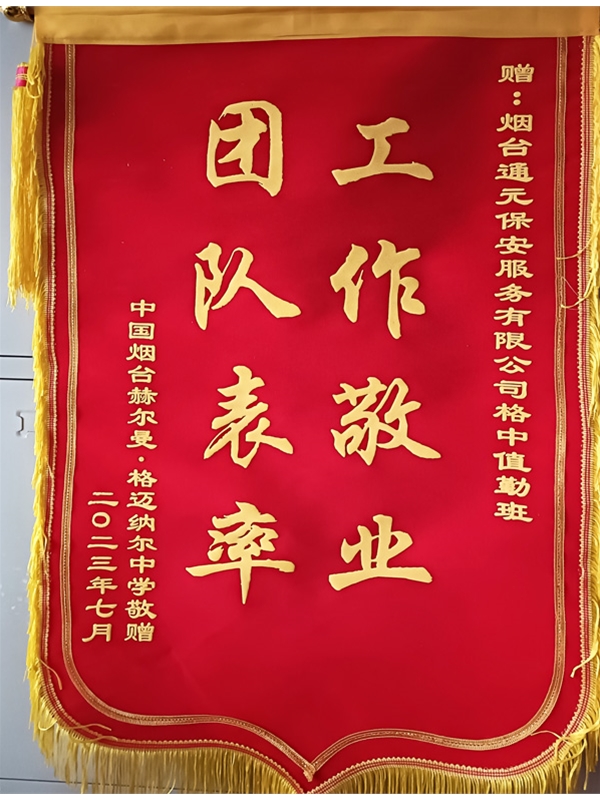 赠：烟台通元保安服务有限公司格中值勤班
工作敬业
团队表率
中国烟台赫尔曼·格迈纳尔中学敬赠
二〇二三年七月